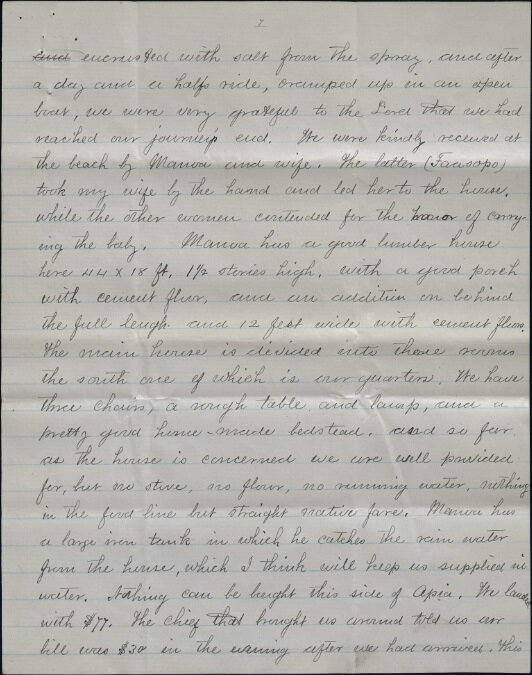 7
and encrusted with salt from the spray, and after
a day and a halfs ride, cramped up in an open
boat, we were very grateful to the Lord that we had
reached our journeys end. We were kindly received at
the beach by Manoa and wife. The latter (Faasopo)
took my wife by the hand and led her to the house,
while the other women contended for the honor of carry-
ing the baby. Manoa has a good lumber house
here 44 x 18 ft, 1½ stories high, with a good porch
with cement floor, and an addition on behind
the full lengh and 12 feet wide with cement floor.
The main house is divided into three rooms
the south one of which is our quarters. We have
three chairs, a rough table and lamp, and a
pretty good home-made bedstead, and so far
as the house is concerned we are well provided
for, but no stove, no flour, no running water, nothing
in the food line but straight native fare. Manoa has
a large iron tank in which he catches the rain water
from the house, which I think will keep us supplied in
water. Nothing can be bought this side of Apia. We landed
with $77. The chief that brought us around told us our
bill was $30 in the evening after we had arrived. This